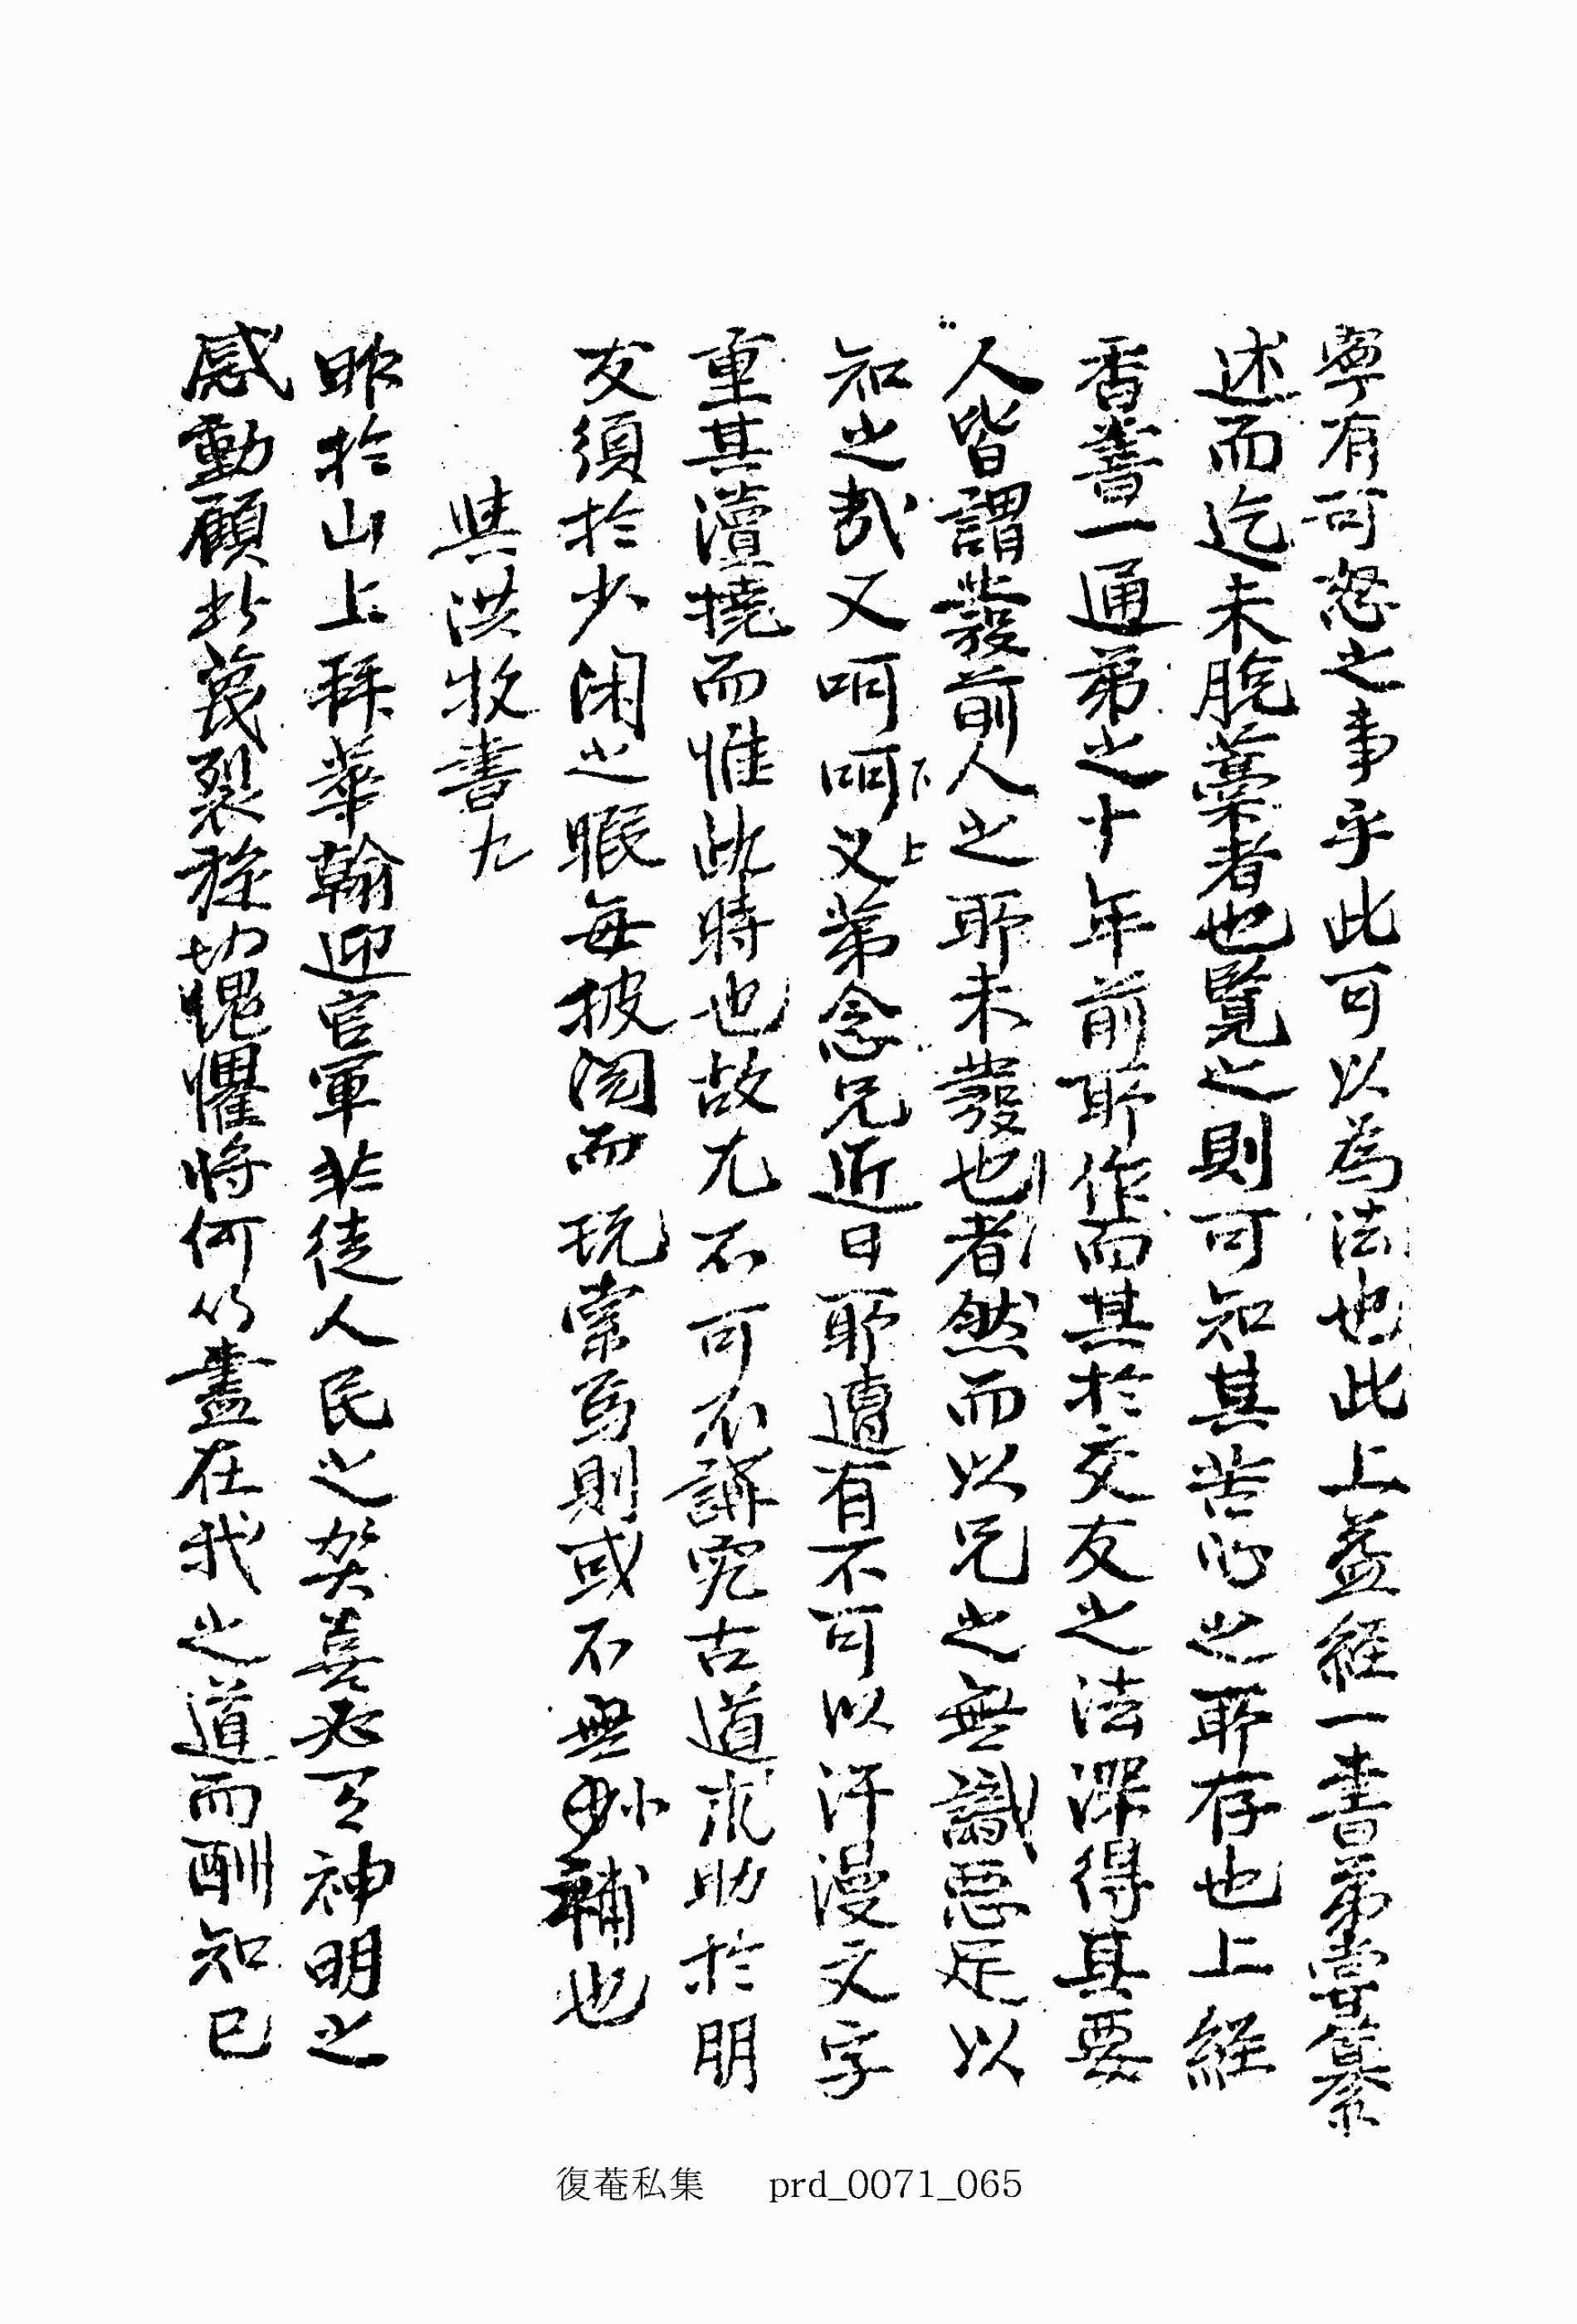 寧有可怒之事乎此可以為法也此上益経一書弟嘗纂
述而迄未脫藁者也覽之則可知其苦心之所存也上經
香善一通弟之十年前所作而其於交友之法深得其要
人皆謂發前人之所未發也者然而以兄之無識惡足以
知之哉又呵呵下又上弟念兄近日所遭有不可以汗漫文字
重其瀆撓而惟此時也故尤不可不講究古道求助於明
友須於少閑之暇每披閱而玩索焉則或不無少補也
與洪牧書九
昨於山上拜華翰迎官軍非徒人民之笑喜必有神明之
感動顧此蔑裂穉幼愧懼將何以盡在我之道而酬知已
復菴私集 prd_0071_065